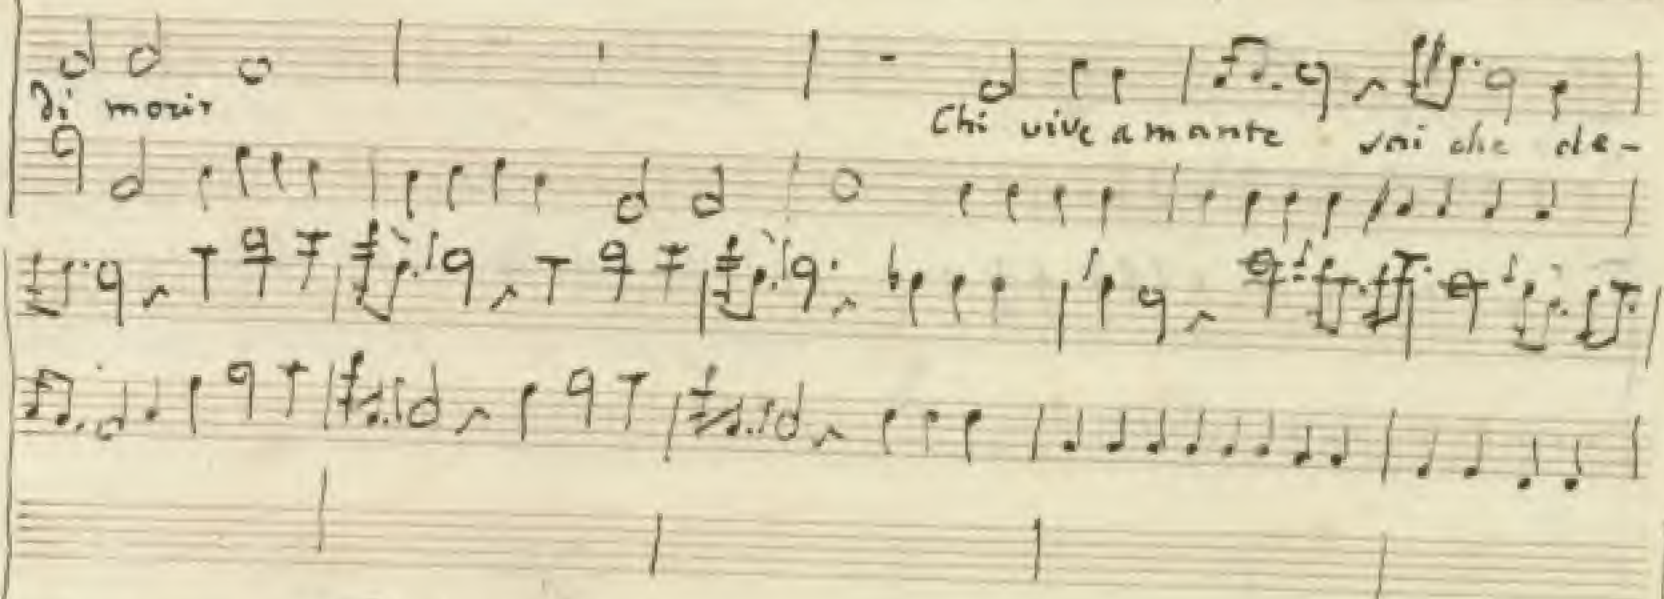 di morir
Chi vive amante sai che de-